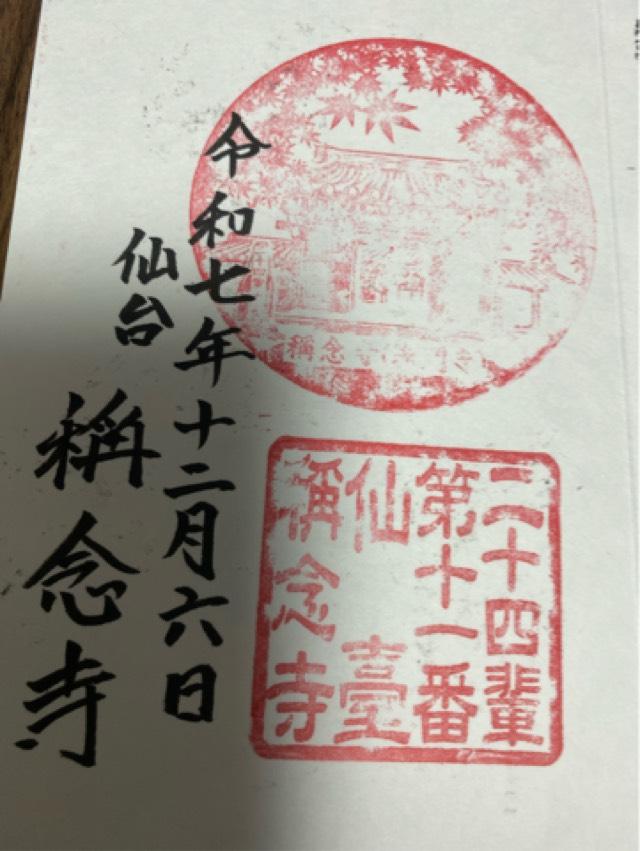 令和七年十二月六日
仙台
稱念寺
二十四輩
第十一番
仙臺
稱念寺